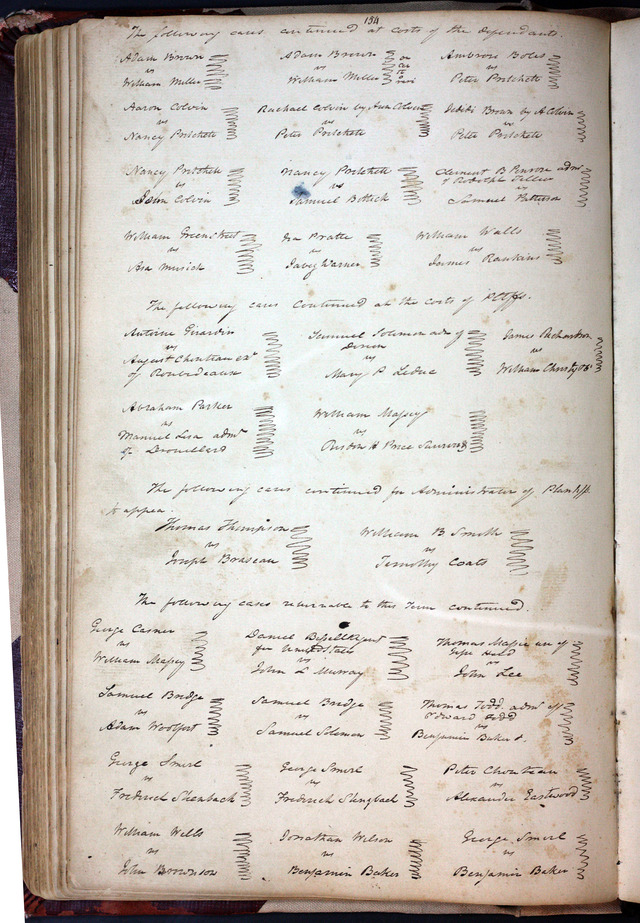 154
The following cases continued at costs of the defendants.
Adam Brown
vs
William Miller
Adam Brown
vs
William Miller
Ambrose Boles
vs
Peter Pritchete
Aaron Colvin
vs
Nancy Pritchete
Rachael Colvin by Aaron Colvin
vs
Peter Pritchete
Brown by A Colvin
vs
Peter Pritchete
Nancy Pritchete
vs
Colvin
Nancy Pritchete
vs
Samuel Bottick
Clement B Penrose admr
of
vs
Samuel Patterson
William Greenstreet
vs
Asa Musick
Ira Pratte
vs
Warner
William Walls
vs
James Rankins
The following cases continued at the costs of Pltffs.
Antoine Girardin
vs
August Chouteau exr
of Roubedeaux
Samuel Solomon adr of
vs
Mary P Leduc
James Richardson
vs
William Christy
Abraham Parker
vs
Manuel Lisa admr
of Brouillard
William Massey
vs
Risdon H Price
The following cases continued for Administrator of Plantiff
to appear
Thomas Thompson
vs
Joseph Braseau
William B Smith
vs
Timothy Coats
The following cases returnable to this Term continued.
George Casner
vs
William Massey
Daniel Bissell Agent
for United States
vs
John L Murray
Thomas
vs
John Lee
Samuel Bridge
vs
Adam Woolfort
Samuel Bridge
vs
Samuel Soloman
Thomas Todd admr of
Edward Todd
vs
Benjamin Baker
George Smirl
vs
Frederick Shenback
George Smirl
vs
Frederick Shingback
Peter Chouteau
vs
Alexander Eastwood
William Wells
vs
John Brownson
Jonathan Wilson
vs
Benjamin Baker
George Smirl
vs
Benjamin Baker